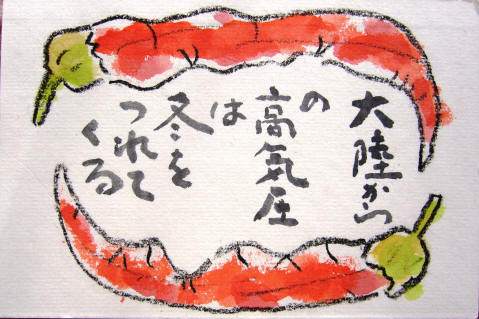 大陸から
の
高気圧
は
冬を
つれて
くる